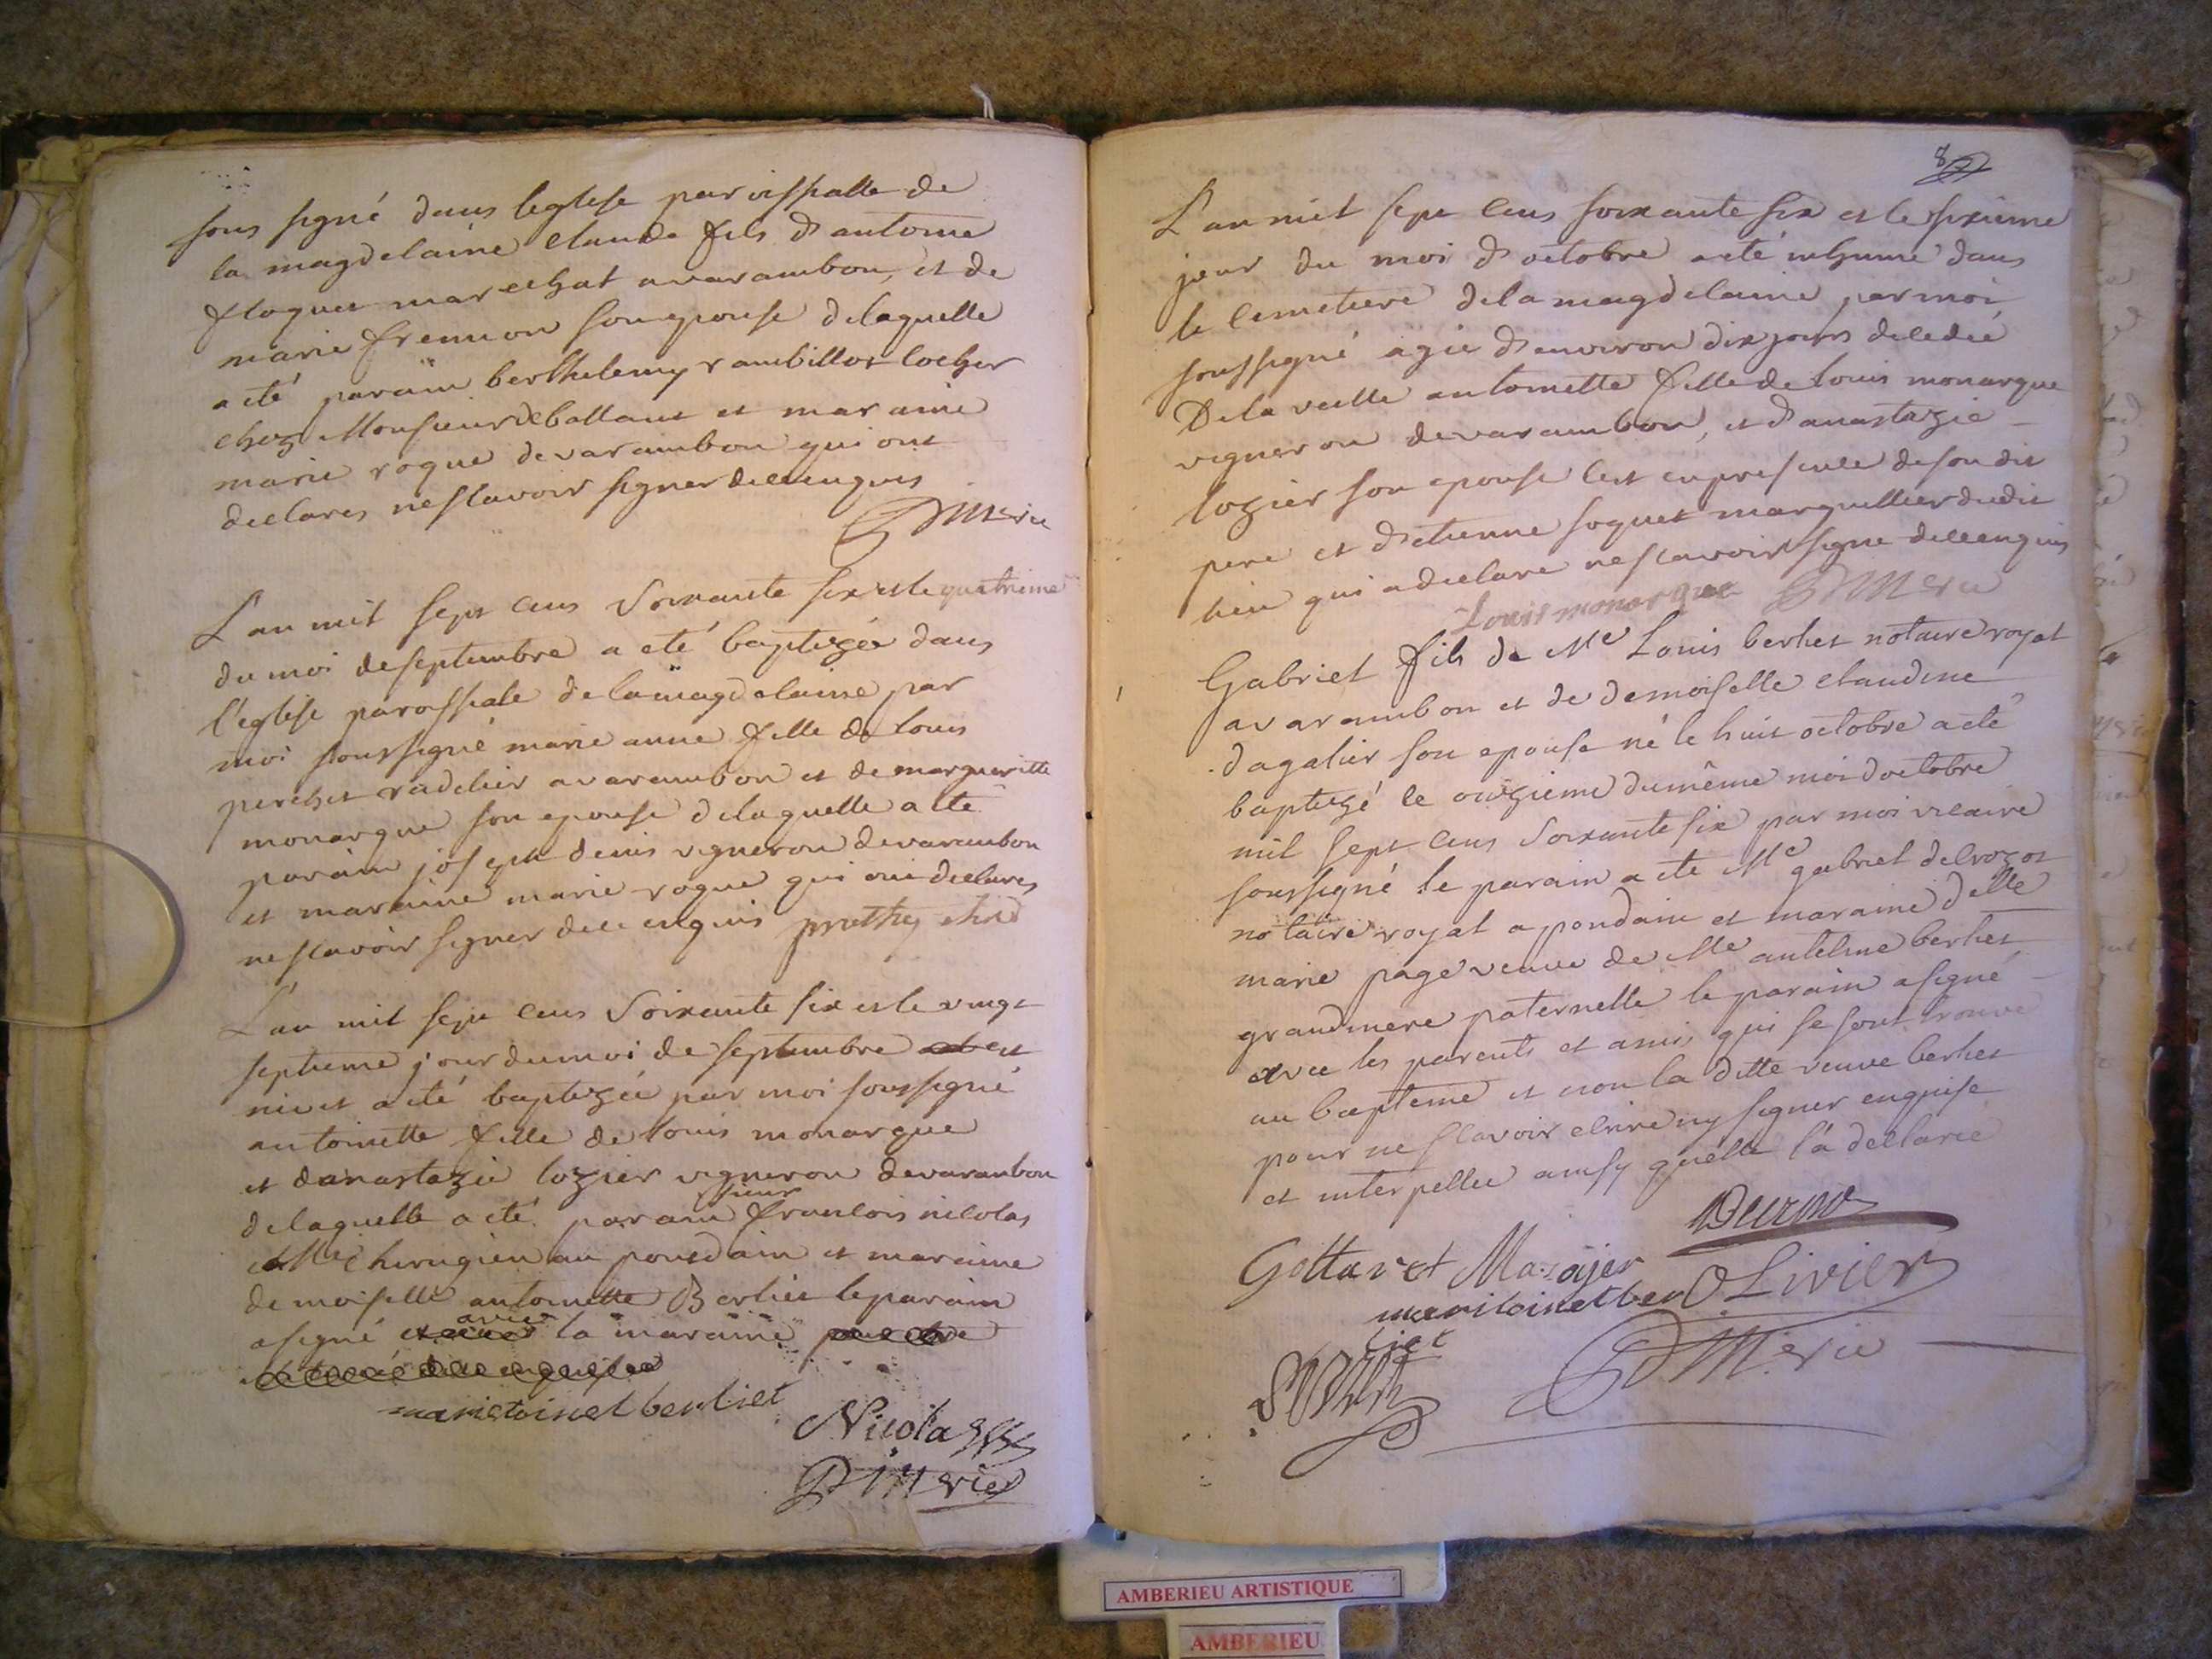 sous signé dans leglise paroissialle de
la magdelaine claude fils d'antoine
floquet marechal a varambon, et de
marie fremion son epouse de laquelle
a eté parain berthelemy rambillot locher
chez Monsieur deballant et maraine
marie roque de varambon qui ont
declares ne scavoir signer de ce enquis
D Merie
L'an mil sept cens Soixante six et le quatrieme
du moi de septembre a eté baptizée dans
l'eglise paroissiale de la magdelaine par
moi soussigné marie anne fille de louis
perchet radelier a varambon et de margueritte
monarque son epouse de laquelle a eté
parain joseph denis vigneron de varambon
et maraine marie roque qui ont declares
ne scavoir signer de ce enquis
L'an mil sept cens Soixante six et le vingt
septieme jour du moi de septembre est
née et a eté baptizée par moi soussigné
antoinette fille de louis monarque
et danastazie lozier vigneron de varambon
de laquelle a eté parain sieur francois nicolas
Me chirugien au pont dain et maraine
demoiselle antoinette Berliet le parain
a signé avec la maraine
marietoinet berliet
Nicolas
D Merie
8
L'an mil sept cens soixante six et le sixieme
jour du moi d'octobre a eté inhumé dans
le cimetiere de la magdelaine par moi
soussigné agée d'environ dix jours decedée
De la veille antoinette fille de louis monarque
vigneron de varambon, et d'anastazie
lozier son epouse cest en presence de son dit
pere et d'etienne foquet marguillier dudit
lieu qui a declare ne scavoir signe de ce enquis
Louis monarque D Merie
Gabriel fils de Me Louis berliet notaire royal
a varambon et de demoiselle claudine
dagalier son epouse né le huit octobre a eté
baptizé le onzieme du même moi doctobre
mil sept cens Soixante six par moi vicaire
soussigné le parain a ete Me gabriel delrozot
notaire royal a pondain et maraine delle
marie page veuve de Me antelme berliet
grandmere paternelle le parain a signé
avec les parents et amis qui se sont trouve
au bapteme et non la ditte veuve berliet
pour ne scavoir elrire ny signer enquise
et interpellee ainsy quelle l'a declaree
Gottaret
marietoinet ber OLivier
liet
D Merie
AMBERIEU ARTISTIQUE
AMBERIEU